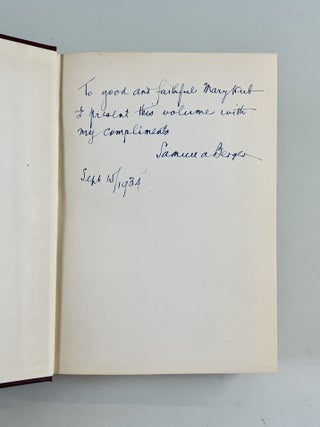 To good and faithful Mary Kub
I present this volume with
my compliments
Samuel A Berger
Sept 15/1934